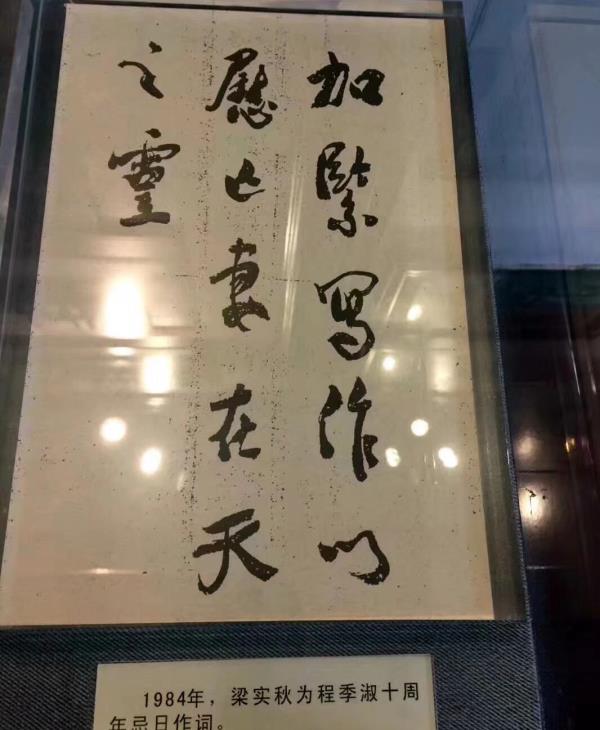 加緊寫作以
慰亡妻在天
之靈
1984年，梁实秋为程季淑十周
年忌日作词。